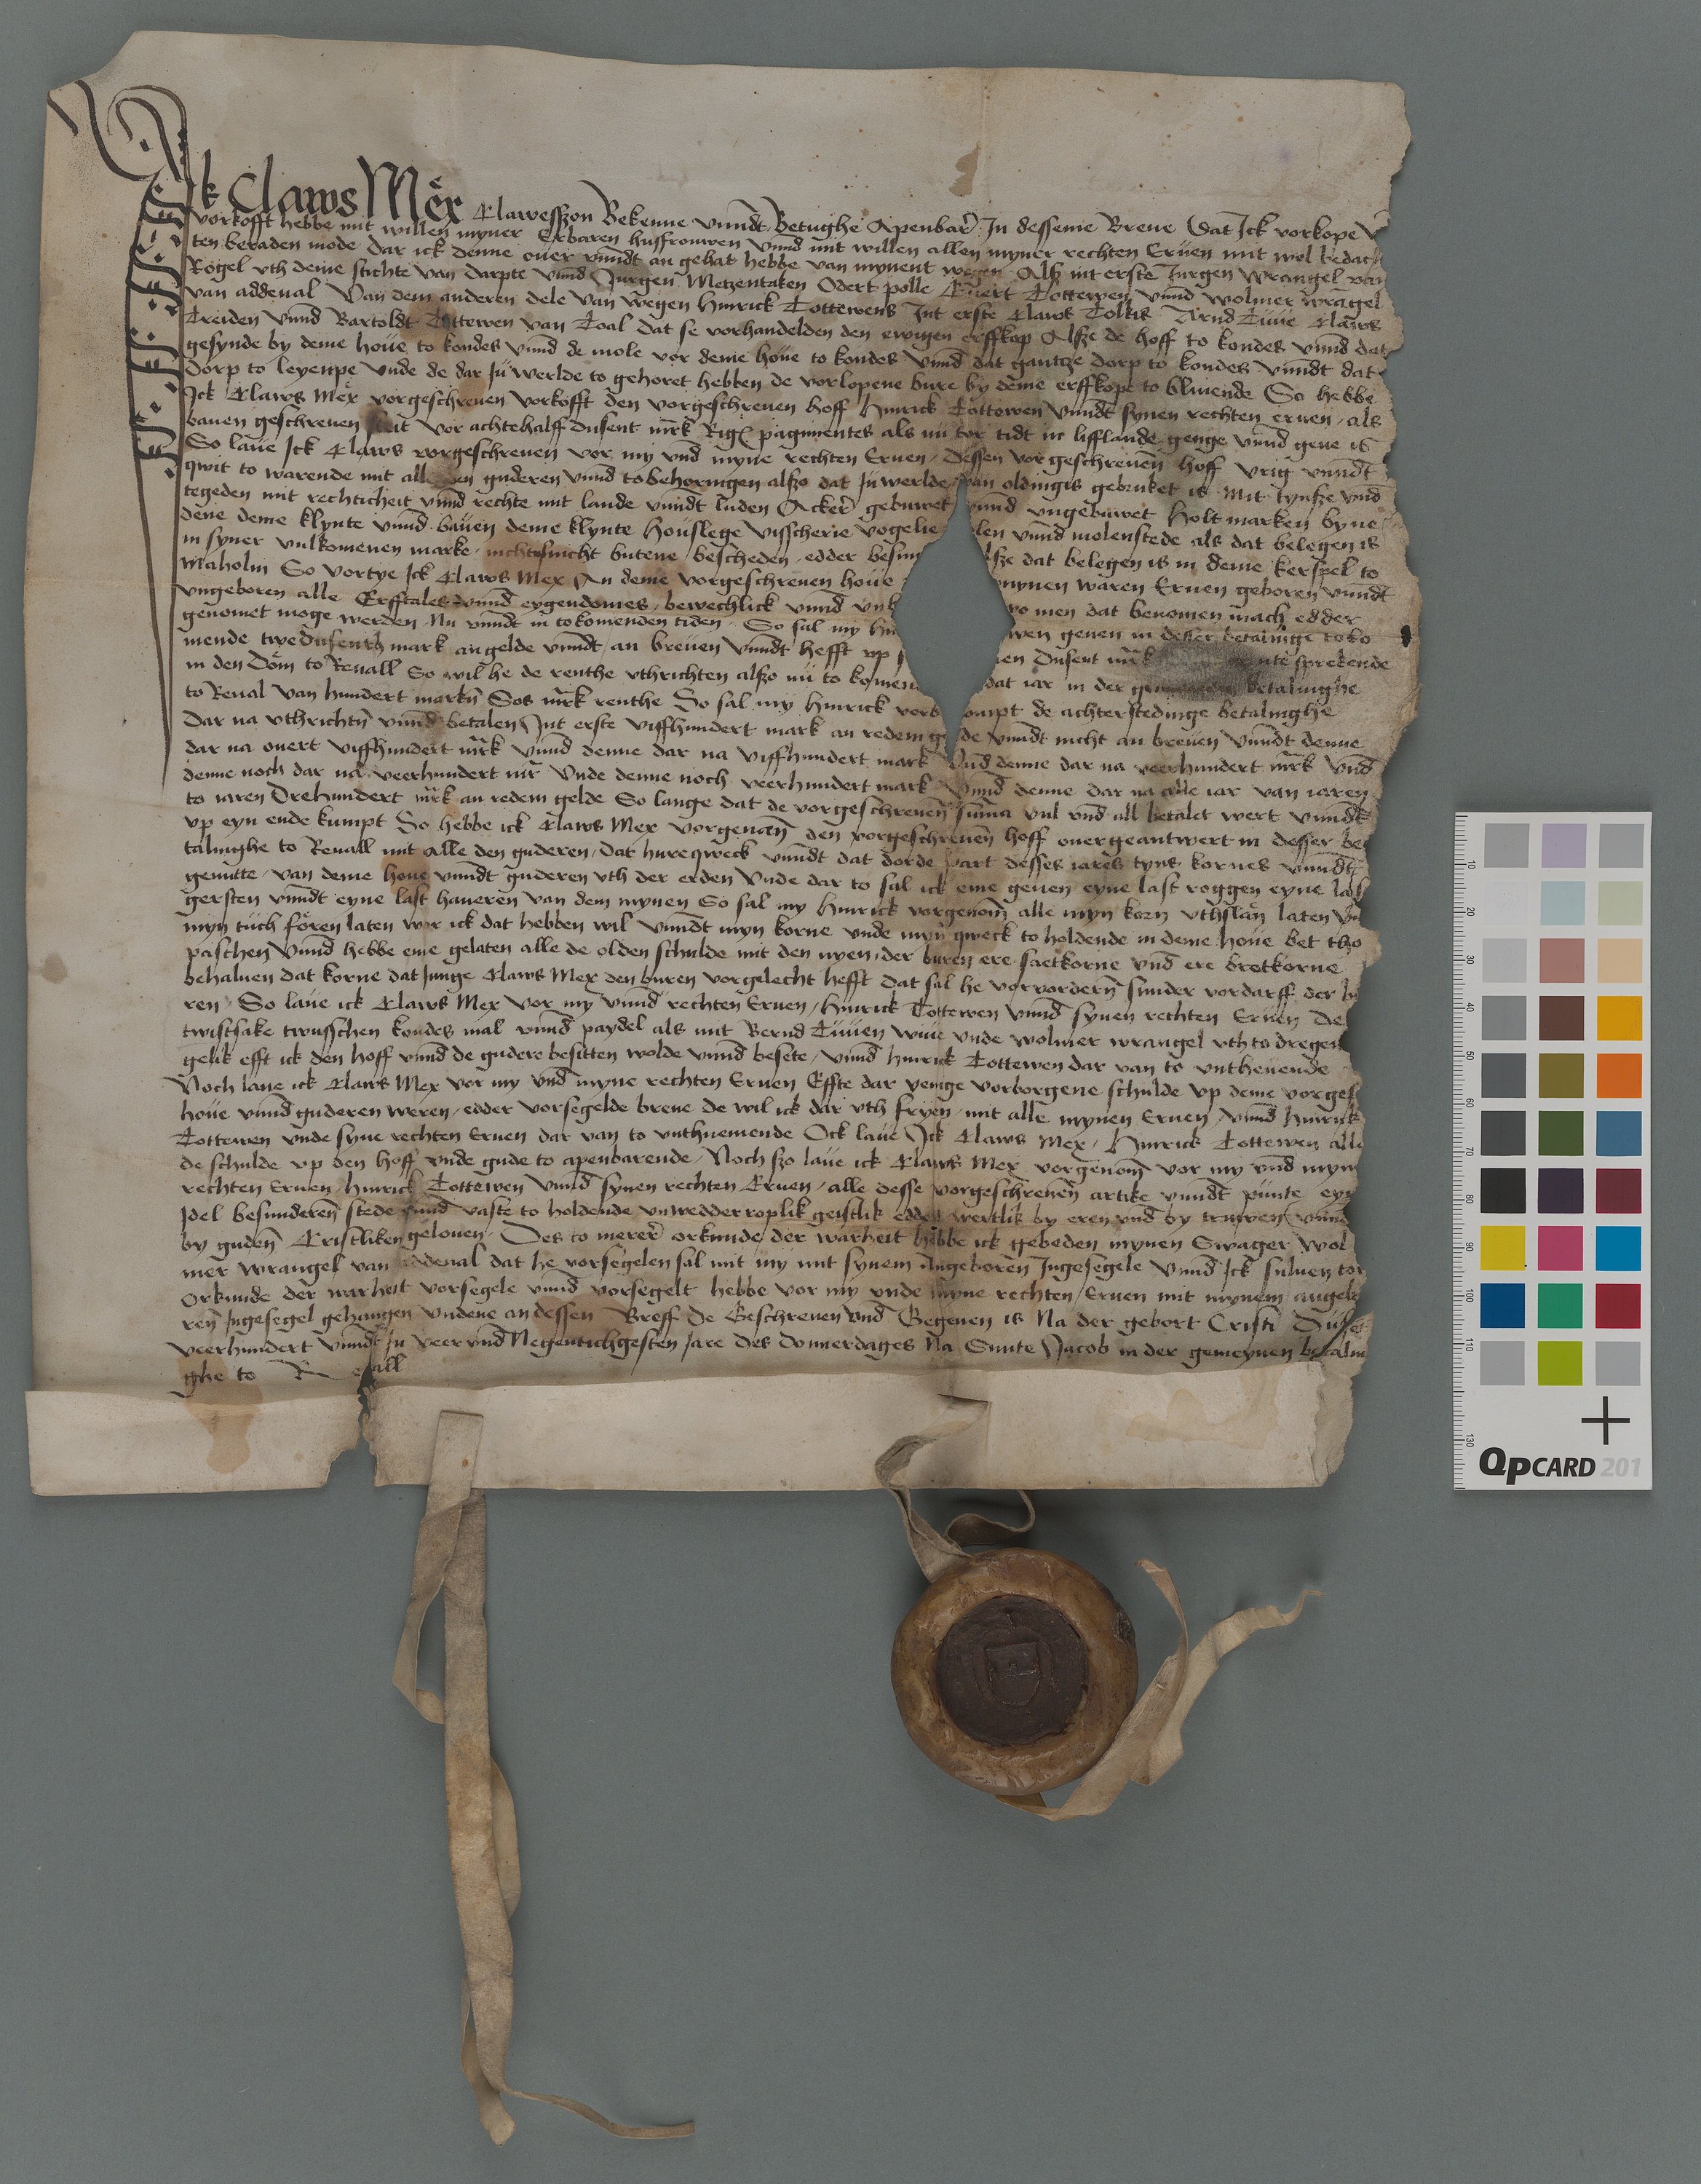 Ik Claws Mex Clawesszon Bekenne vnnd Betughe Apenbar In desseme Breue Dat Ick vorkope
vorkofft hebbe mit willen myner Erbaren husfrouwen vnnd mit willen allen myner rechten Eruen mit wol bedach
ten beraden mode dar ick denne ouer vnndt an gehat hebbe van mynent wegen Alsz int erste Jurgen Wrangel van
Rogel vth deme stichte van darpte vnnd Jurgen Metzentaken Odert polle Euert Tottewen vnnd wolmer wragel
van addenal Van dem anderen dele van wegen hinrick Tottewens Int erste Claws Tolkis Arnd Tuue Claws
Treiden vnnd Bartoldt Tottewen van Toal dat se vorhandelden den ewigen erffkop Alsze de hoff to kondes vnnd dat
gesynde by deme houe to kondes vnnd de mole vor deme houe to kondes vnnd dat gantze dorp to kondes vnndt dat
dorp to leyenpe vnde de dar Ju werlde to gehoret hebben de vorlopene bure by deme erffkope to bliuende So hebbe
Ick Claws Mex vorgeschreuen vorkofft den vorgeschreuen hoff hinrick Tottowen vnndt synen rechten eruen als
bauen geschreuen steit vor achtehalff dusent mrk Rig paginentes als nu tor tidt in lifflande genge vnnd geue is
So laue Ick Claws vorgeschreuen vor my vnd myne rechten Eruen dessen vorgeschreuen hoff vrig vnndt
qwit to warende mit alle den guderen vnnd tobehoringen alszo dat Ju werlde van oldingis gebruket is mit tynsze vnd
tegeden mit rechticheit vnnd rechte mit lande vnndt luden Acker gebuwet vnnd vngebuwet holtmarken byne
dene deme klynte vnnd bauen deme klynte houslege visscherie vogelie olen vnnd molenstede als dat belegen is
in syner vulkomenen marke nichtesnicht butene bescheden edder besun alsze dat belegen is in deme kerspel to
Maholm So vortye Ick Claws Mex An deme vorgeschreuen houe mynen waren Eruen geboren vnndt
vngeboren alle Erfftales vnnd eygendomes bewechlick vnnd vnb wo men dat benomen mach edder
genomet moge werden Nu vnndt in tokomenden tiden So sal my hin wen geuen in desser betalinge toko
mende twedusenth mark an gelde vnndt an breuen vnndt hefft vp en dusent mrk nte sprekende
in den Dom to Reuall So wil he de renthe vthrichten alszo nu to komen dat iar in der betalinghe
to Reual van hundert markn Sos mrk renthe So sal my hinrick vorb ompt de achterstedinge betalinghe
Dar na vthrichtn vnnd betalen Int erste viffhundert mark an redem gelde vnndt nicht an breuen vnndt denne
dar na ouert viffhundert mrk vnnd denne dar na viffhundert mark vnd denne dar na veerhundert mrk vnd
denne noch dar na veerhundert mr vnde denne noch veerhundert mark vnnd denne dar na alle iar van iaren
to iaren Drehundert mrk an redem gelde So lange dat de vorgeschreuen suma vul vnd all betalet wert vnndt
vp eyn ende kumpt So hebbe ick Claws Mex vorgenan den vorgeschreuen hoff ouergeantwert in desser be
talinghe to Reuall mit alle den guderen dat hureqweck vnndt dat dorde part desses iares tyns kornes vnndt
genutte van deme houe vnndt guderen vth der erden vnde dar to sal ick eme geuen eyne last roggen eyne las
gersten vnndt eyne last haueren van dem mynen So sal my hinrick vorgenom alle myn korn vthslan laten vn
myn tuch foren laten wor ick dat hebben wil vnndt myn korne vnde myn qweck to holdende in deme houe bet tho
paschen vnnd hebbe eme gelaten alle de olden schulde mit den nyen der buren ere saetkorne vnd ere brotkorne
behaluen dat korne dat Junge Claws Mex den buren vorgelecht hefft dat sal he vorvordern sunder vordarff der bu
ren So laue ick Claws Mex vor my vnnd rechten Eruen hinrick Tottewen vnnd synen rechten Eruen De
twistsake twusschen kondes mal vnnd paydel als mit Bernd Tuuen wiue vnde wolmer wrangel vth to dregen
gelik efft ick den hoff vnnd de gudere besitten wolde vnnd besete vnnd hinrick Tottewen dar van to vntheuende
Noch laue ick Claws Mex vor my vnd myne rechten Eruen Effte dar yenige vorborgene schulde vp deme vorges
houe vnnd guderen weren edder vorsegelde breue de wil ick dar vth fryen mit alle mynen Eruen vnnd hinrick
Tottewen vnde syne rechten Eruen dar van to vnthuemende Ock laue Ick Claws Mex hinrick Tottewen alle
de schulde vp den hoff vnde gude to apenbarende Noch szo laue ick Claws Mex vorgenom vor my vnd myn
rechten Eruen hinrick Tottewen vnnd synen rechten Eruen alle desse vorgeschreuen artike vnndt punte eyn
Idel besunderen stede vnnd vaste to holdende vnwedderroplik geistlik edder wertlik by eren vnd by truwen vnnd
by guden Cristliken gelouen Des to merer orkunde der warheit hebbe ick gebeden mynen Swager Wol
mer Wrangel van addenal dat he vorsegelen sal mit my mit synem Angeboren Ingesegele vnnd Ick suluen tor
Orkunde der warheit vorsegele vnnd vorsegelt hebbe vor my vnde myne rechten Eruen mit mynem angebo
ren Ingesegel gehangen vndene an dessen Breff De Geschreuen vnd Gegeuen is Na der gebort Cristi Duset
veerhundert vnndt Ju veer vnd Negentichgesten Jare des donnerdages Na Sunte Jacob in der gemeynen betalin
ghe to Reuall
QPCARD 201
10
20
30
40
50
60
70
80
90
100
110
130